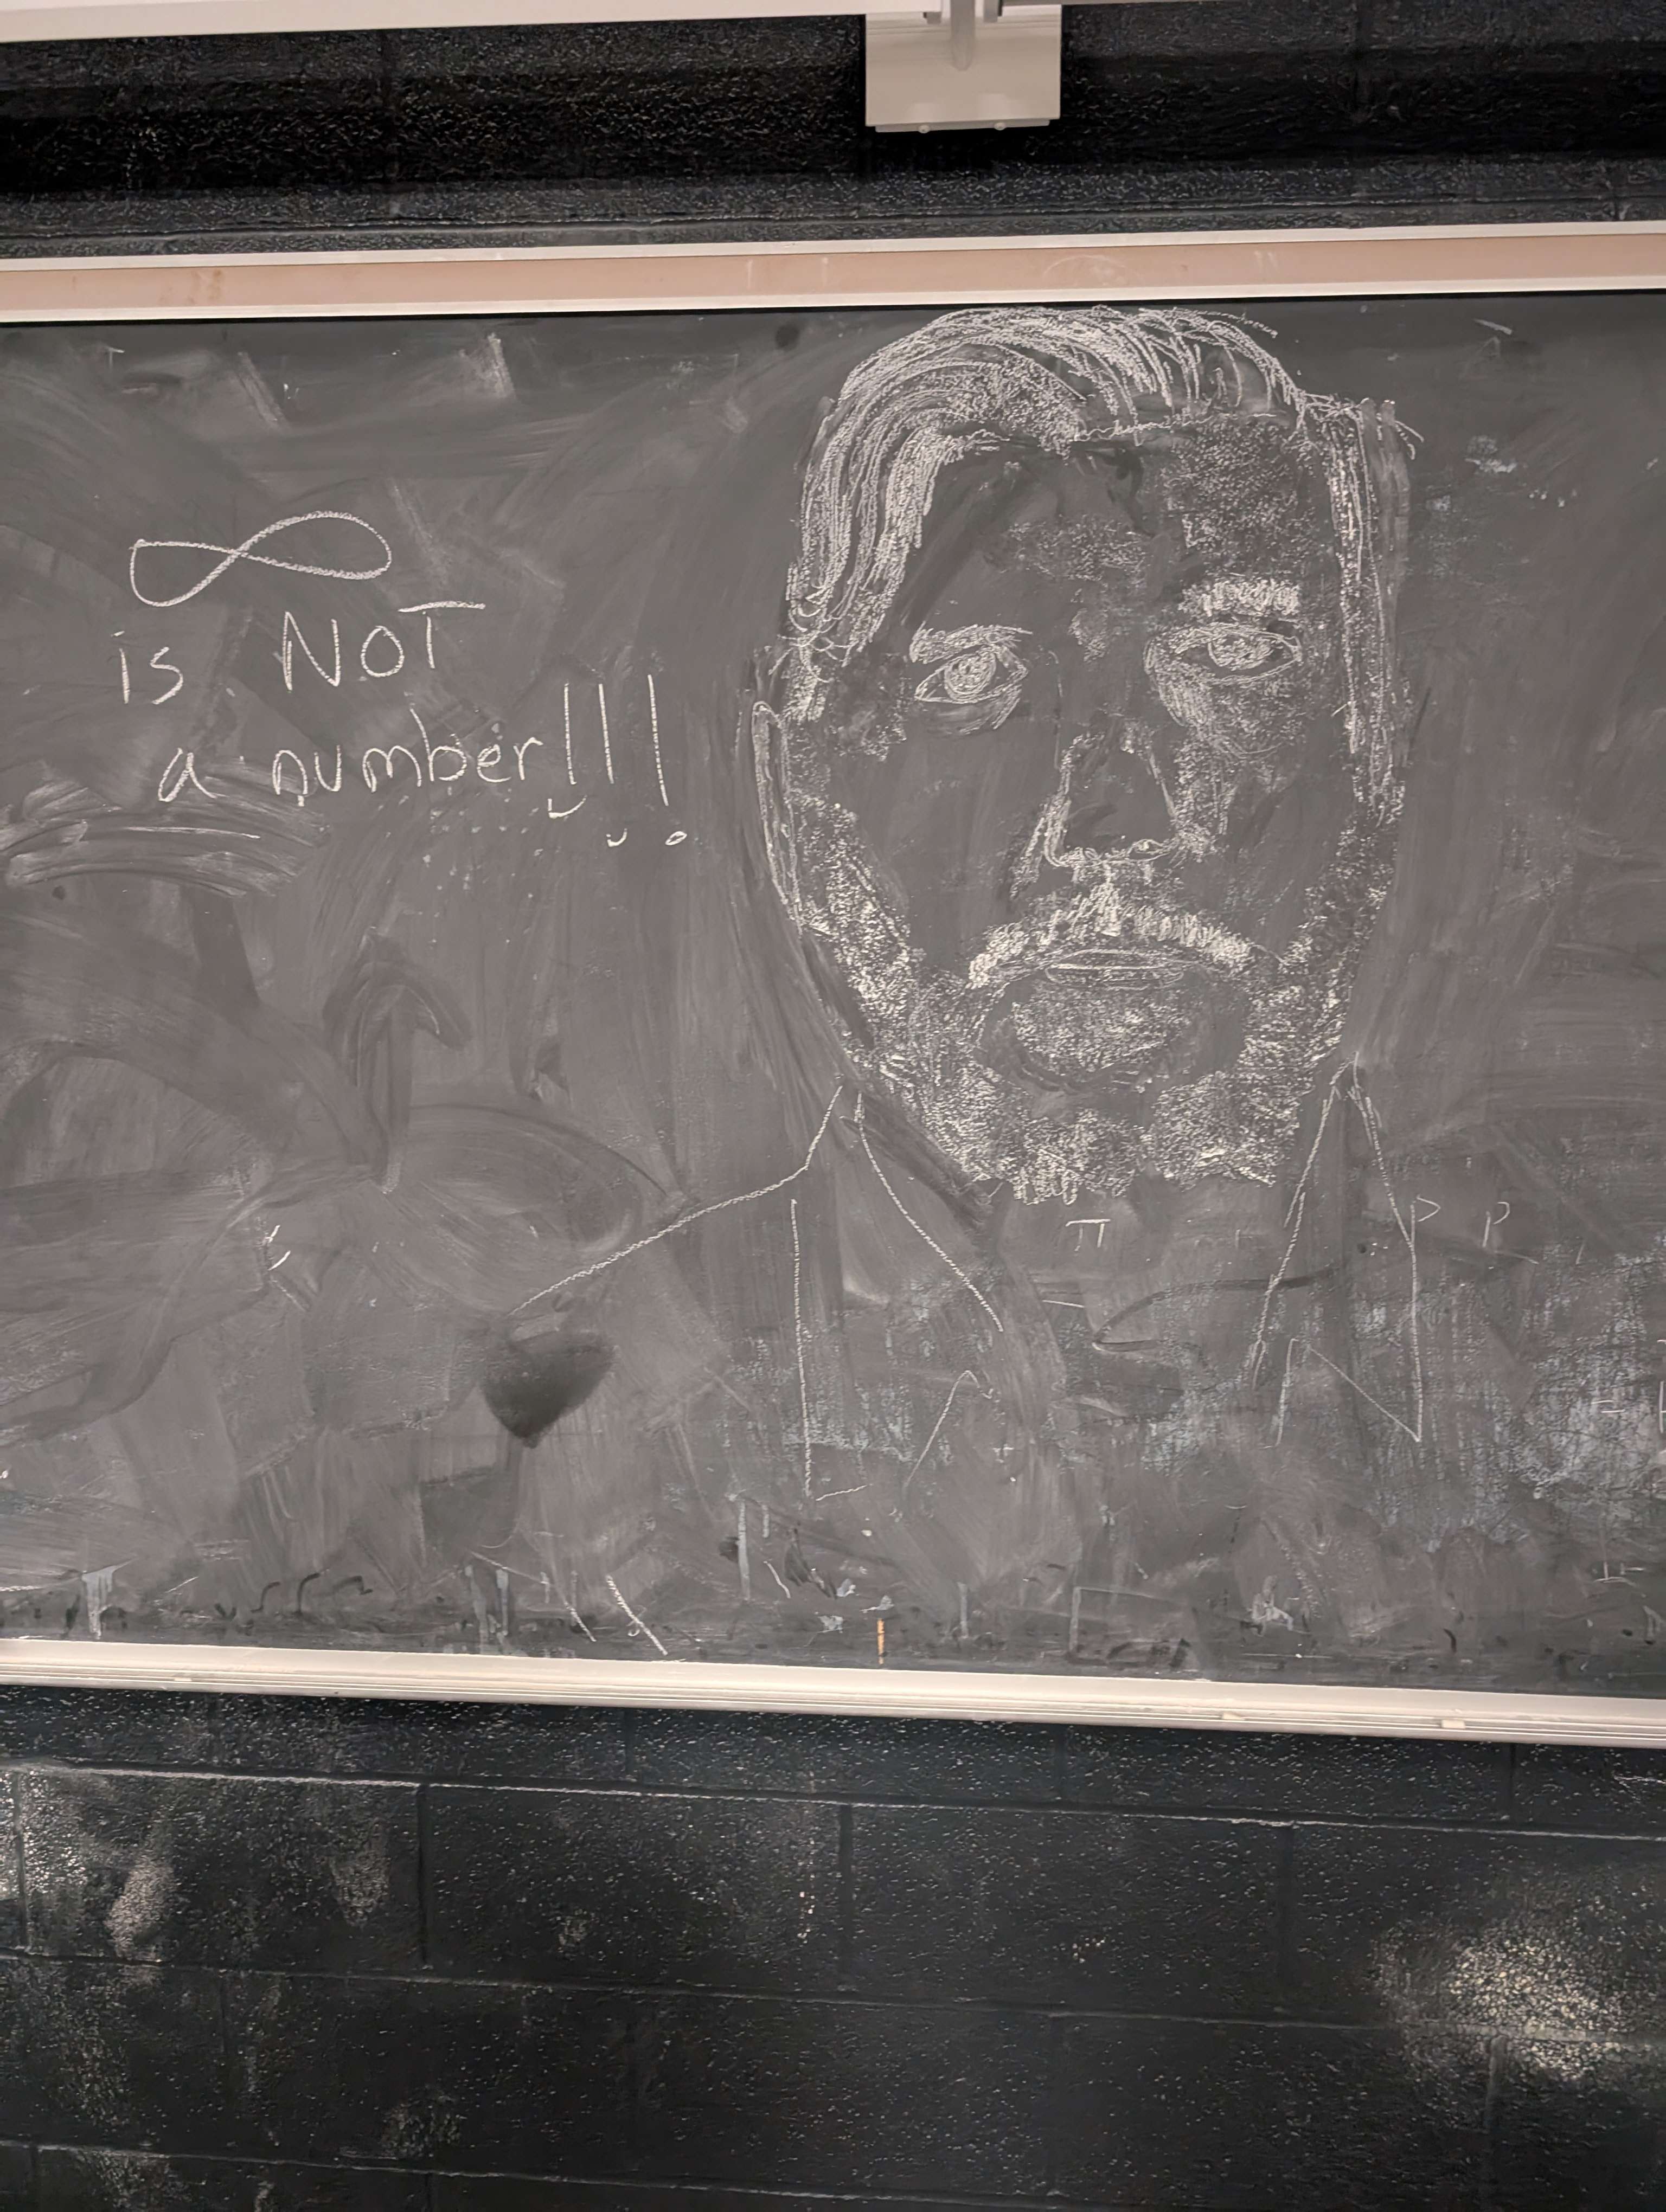 ∞
is NOT
a number!!!
π
P P